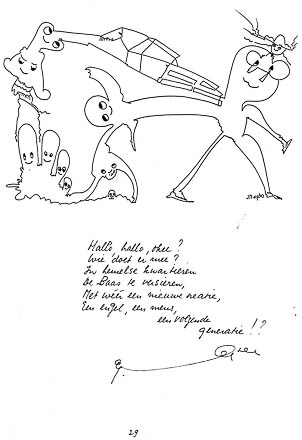 Hallo hallo, thee?
Wie doet er mee?
In hemelse kwartieren
De Baas te versieren,
Met wéér een nieuwe creatie,
Een engel, een mens,
een volgende
generatie!?
29